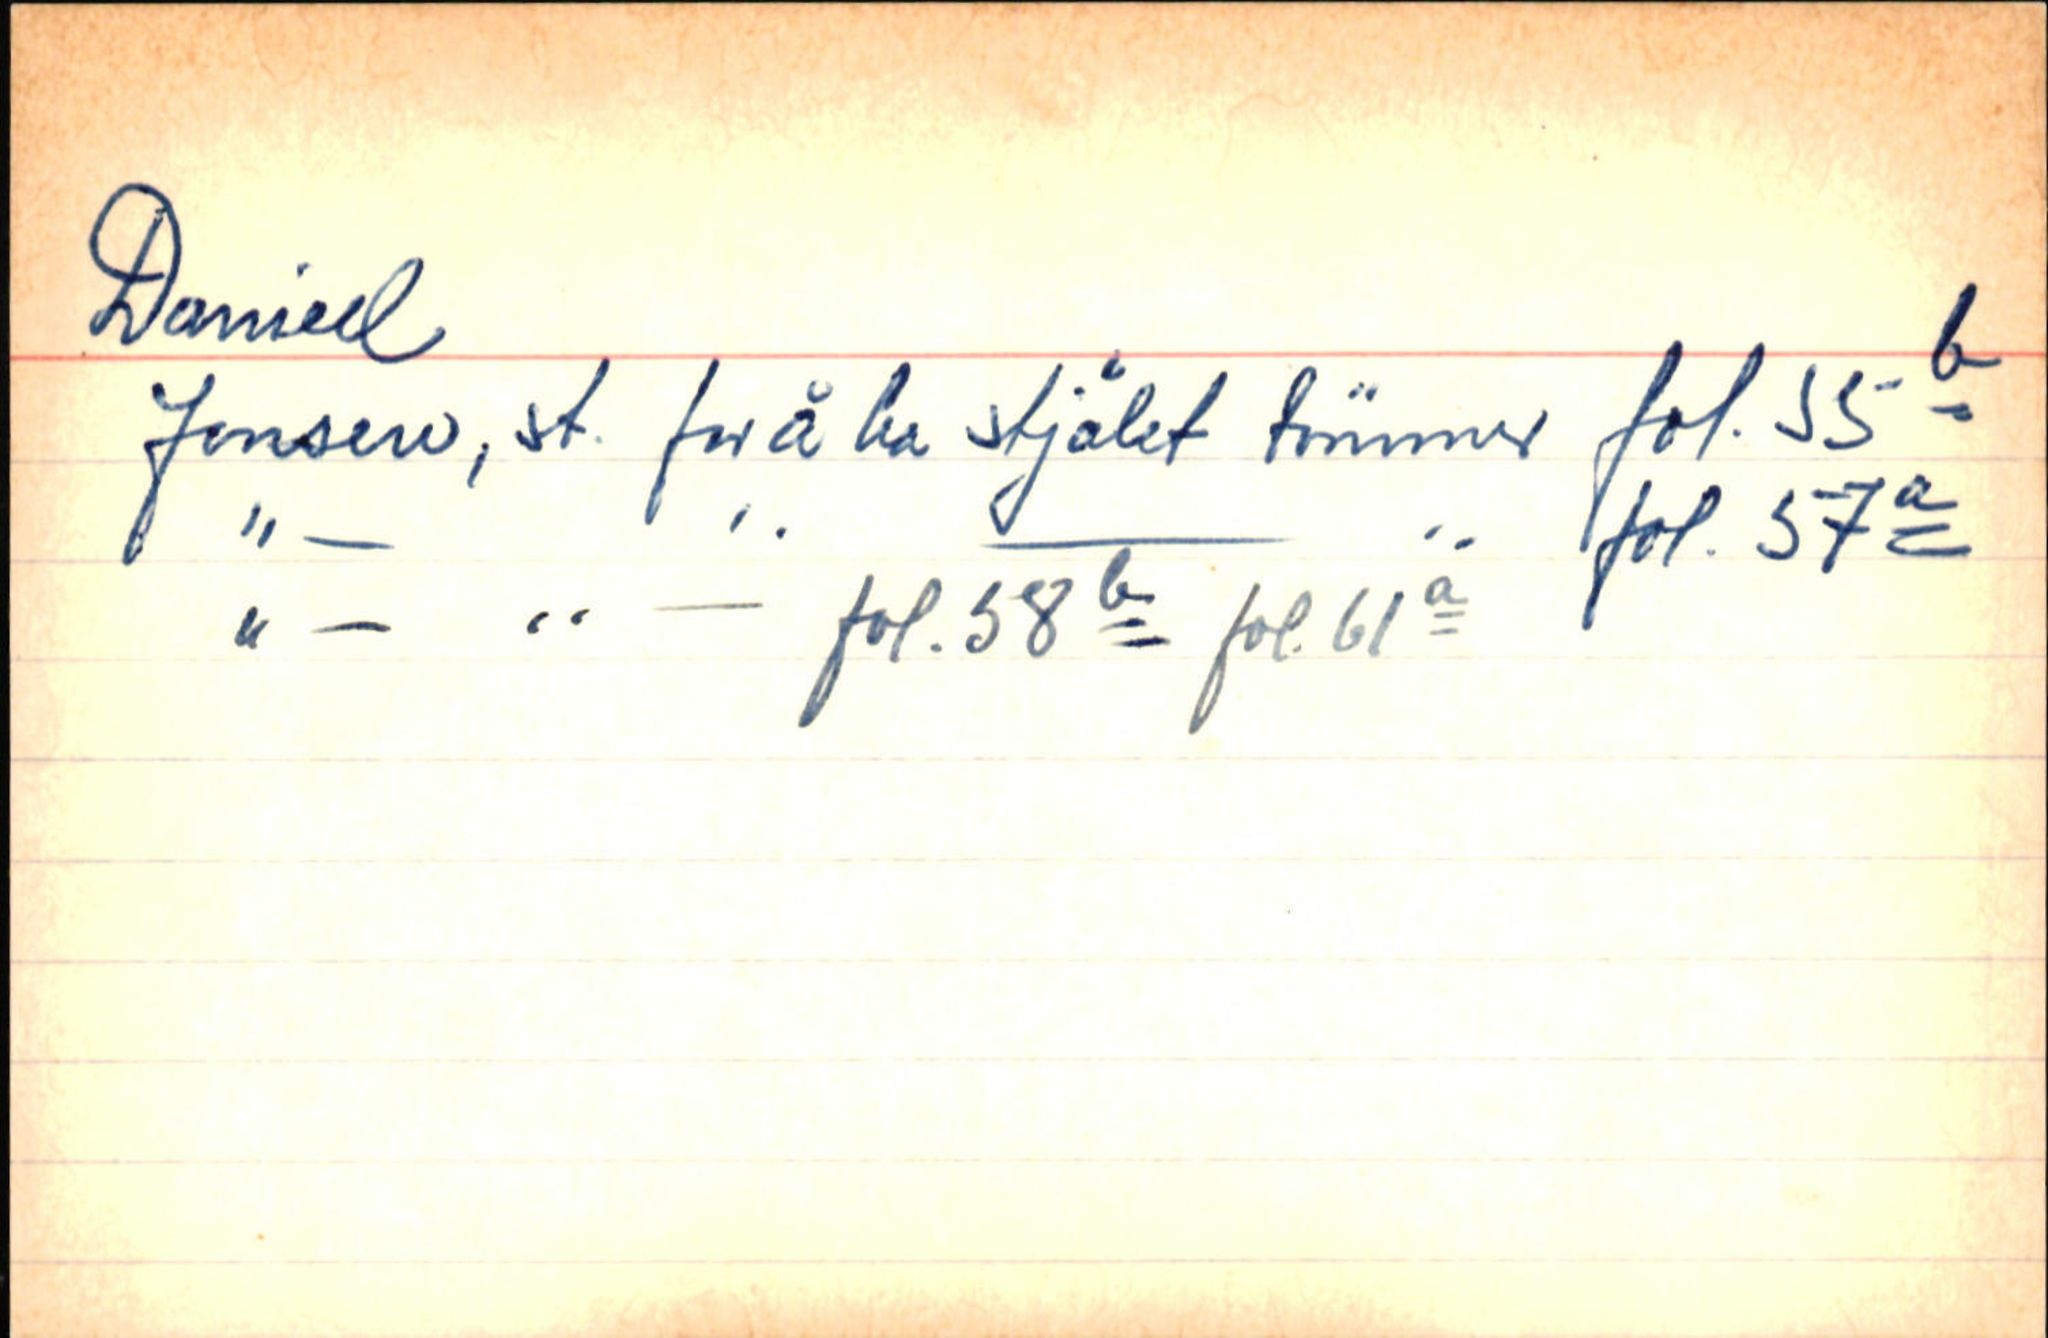 Daniel
Jensen, st. for å ha stjålet tömmer fol. 55 b
" — " — " fol. 57 a
" — " — fol. 58 b fol. 61 a